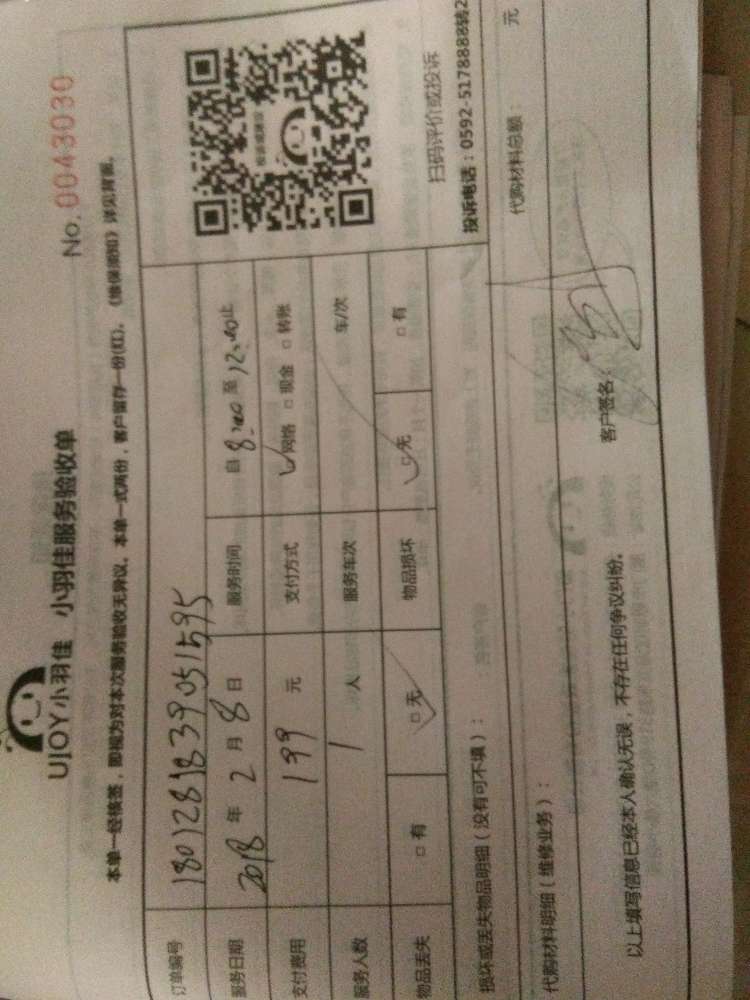 UJOY小羽佳 小羽佳服务验收单
No. 0043030
本单一经核签，即视为对本次服务验收无异议。本单一式两份，客户留存一份(红)。《维保须知》详见背面。
订单编号 1801281839051595
服务日期 2018 年 2 月 8 日 服务时间 自 8:00 至 12:00 止
支付费用 199 元 支付方式 网络 □ 现金 □ 转账
服务人数 1 人 服务车次 车/次
物品丢失 □ 有 □ 无 物品损坏 □ 无 □ 有
扫码评价或投诉
投诉电话：0592-5178888转2
损坏或丢失物品明细（没有可不填）：
代购材料明细（维修业务）： 代购材料总额： 元
以上填写信息已经本人确认无误，不存在任何争议纠纷。 客户签名：